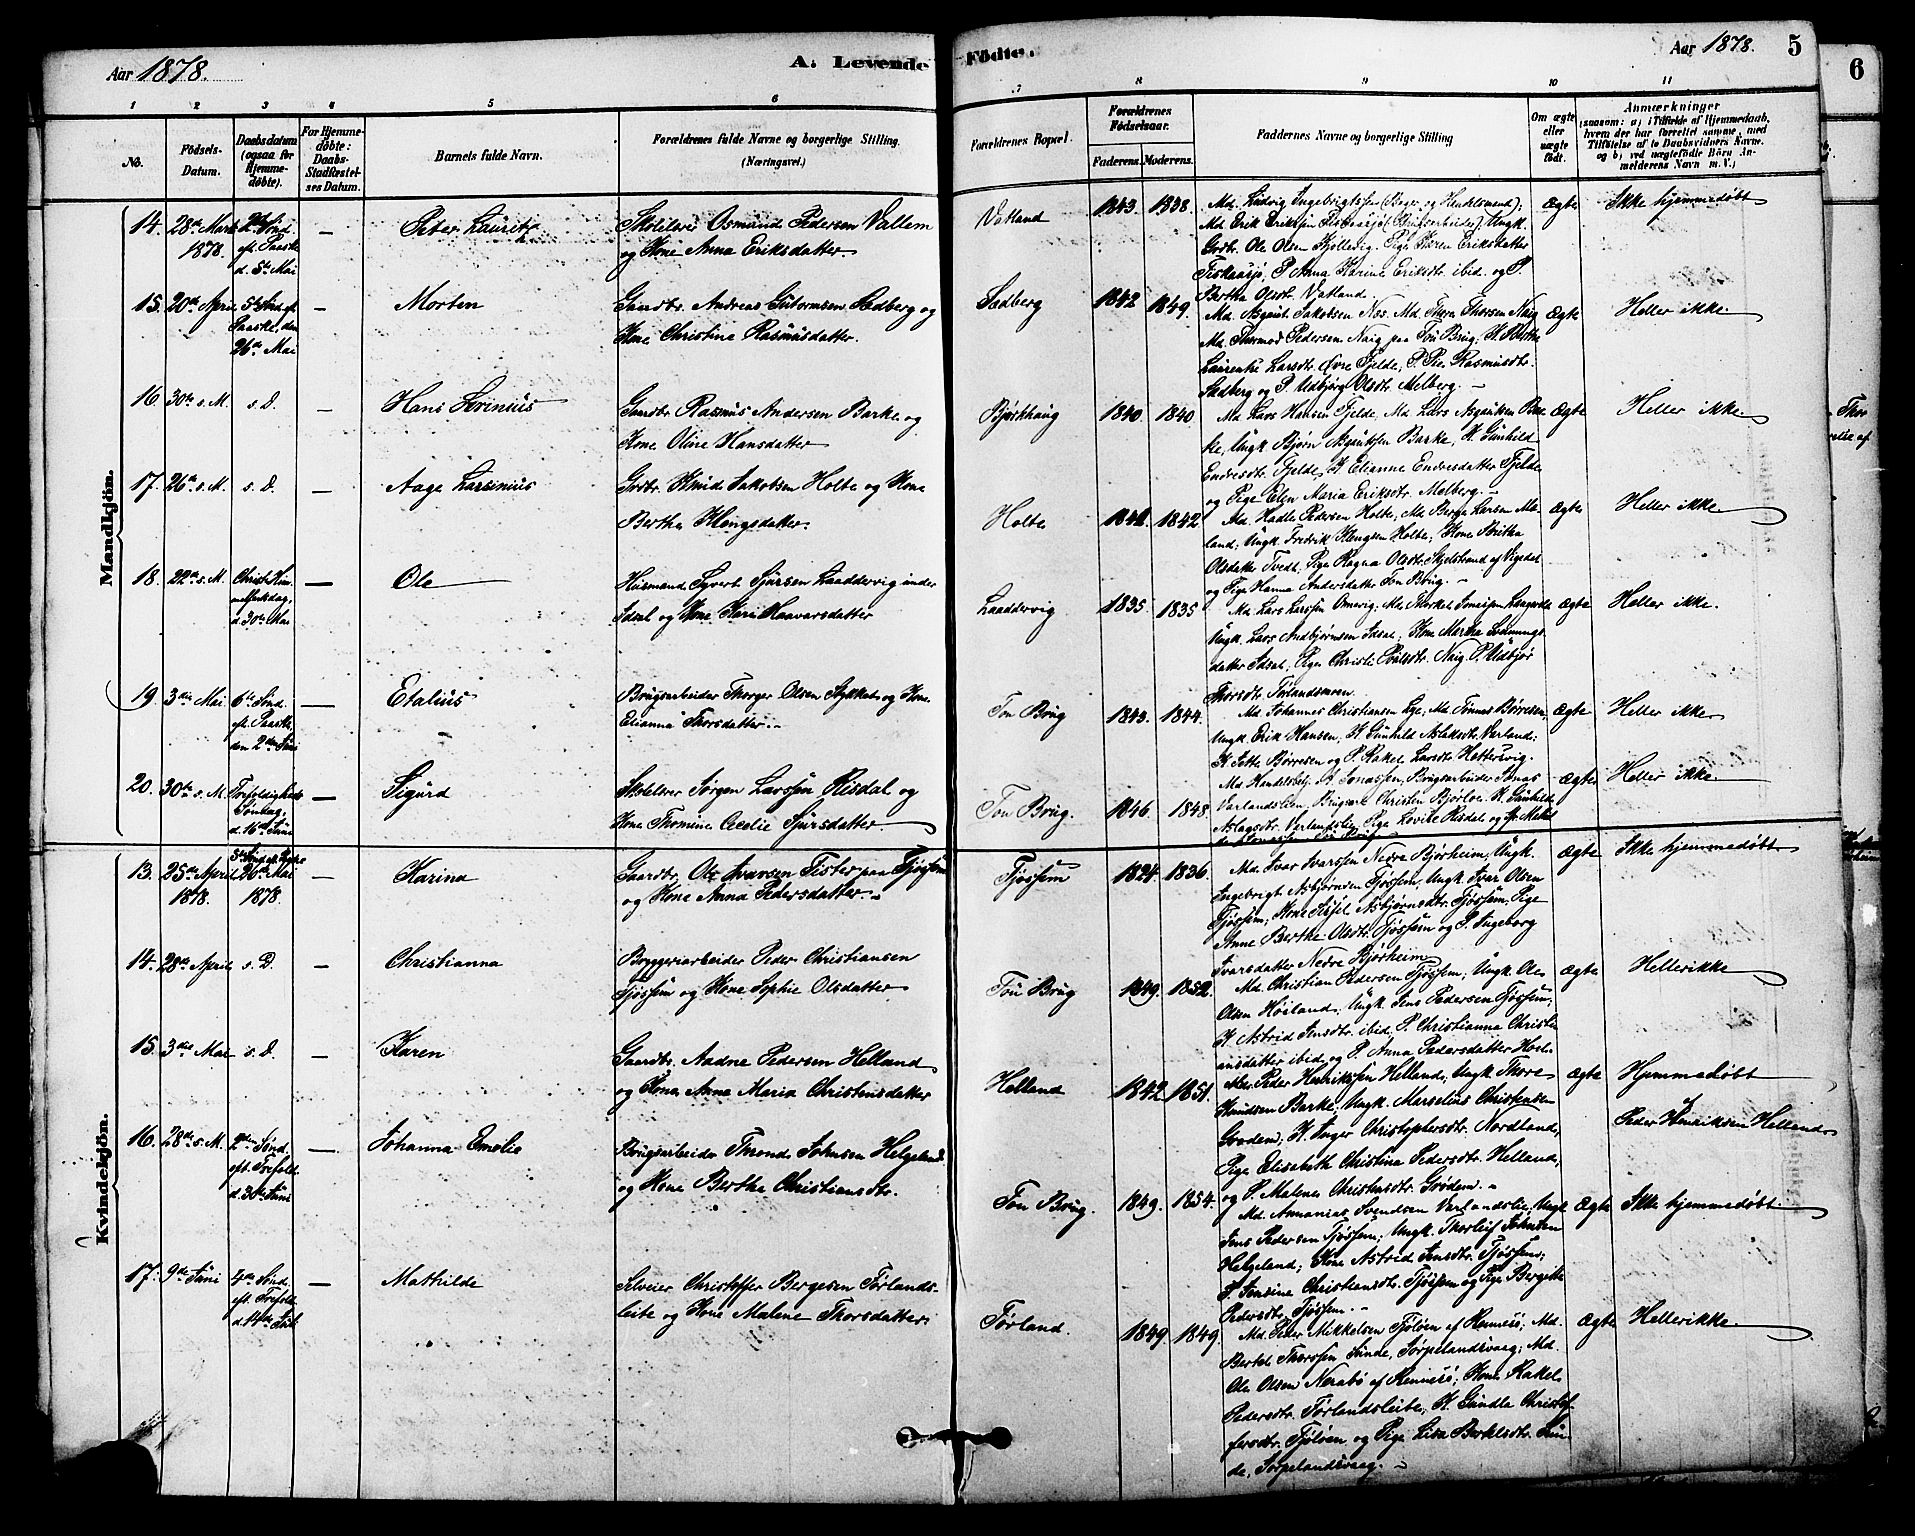 Aar 1878.
A. Levende Födte.
Aar 1878. 5
6
1 2 3 4 5 6 7 8 9 10 11
No.
Födsels-
Datum.
Daabsdatum
(ogsaa for
Hjemme-
døbte).
For Hjemme-
døbte:
Daabs-
Stadfæstel-
ses Datum.
Barnets fulde Navn.
Forældrenes fulde Navne og borgerlige Stilling.
(Næringsvei.)
Forældrenes Bopæl.
Forældrenes
Födselsaar.
Faderens. Moderens.
Faddernes Navne og borgerlige Stilling
Om ægte
eller
uægte
födt.
Anmærkninger
(saasom: a) i Tilfælde af Hjemmedaab,
hvem der har forrettet samme, med
Tilföielse af to Daabsvidners Navne.
og b) ved uægtefödte Börn An-
melderens Navn m. V.)
Mandkjön.
14. 28de Marts
1878.
2den Sönd.
eft. Paaske
d. 5te Mai
Peter Lauritz
Skolelærer Osmund Pedersen Vallem
og Kone Anna Eriksdatter.
Vatland 1843. 1838.
Md. Ludvig Ingebrigtsen (Bager og Handelsmand);
Md. Erik Eriksen Fiskaasjø (Brugsarbeider); Ungk.
Grdbr. Ole Olsen Kjølevig. Pige Karen Eriksdatter
Fiskaasjø. P. Anna Karine Eriksdtr. ibid. og P.
Bertha Olsdtr. Vatland.
Ægte Ikke hjemmedøbt
15. 20de April
5te Sönd. eft.
Paaske, den
26de Mai
Morten
Gaardbr. Andreas Guttormsen Sedberg og
Kone Christine Rasmusdatter.
Sedberg 1842 1849.
Md. Asgaut Jakobsen Nos. Md. Thore Thorsen Naig
Md. Thormod Pedersen Naig paa Tou Brug; K. Berthe
Laurentse Larsdtr. Øvre Fjelde; P.
Sedberg og P. Udbjørg Olsdtr. Melberg.
Ægte Heller ikke.
16. 30te s. M. s. D.
Hans Severinius
Gaardbr. Rasmus Andersen Barke og
Kone Oline Hansdatter
Bjørkhaug 1840 1840
Md. Lars Hansen Fjelde, Md. Lars Asgautsen Bar-
ke, Ungk. Bjørn Asgautsen Barke, K. Gunhild
Endresdtr. Fjelde, K. Elianne Endresdatter Fjelde
og Pige Elen Maria Eriksdtr. Melberg.
Ægte Heller ikke.
17. 26de s. M. s. D.
Aage Larsenius
Grdbr. Knud Jakobsen Holte og Kone
Bertha Klengsdatter.
Holte 1842
Md. Hadle Pedersen Holte; Md. Berge Larsen Me-
land; Ungk. Fredrik Klengsen Holte; Kone Britha
Olsdatter Tvedt; Pige Ragna Olsdtr. Skjelstrand af Vigedal
og Pige Hanna Andersdatter Tou Brug.
Ægte Heller ikke.
18. 22de s. M.
Christi Him-
melfartsdag,
d. 30te Mai
Ole
Husmand Syvert Sjursen Laaddervig under
Idsal og Kone Kari Haavarsdatter
Laaddervig 1835. 1835
Md. Lars Larssen Omevig; Md. Thorkel
Ungk. Lars Audbjørnsen Idsal; Kone Martha
datter Idsal; Pige Christi Naig P. Udbjør
Thorsdtr. Førlandsmoen.
Ægte Heller ikke.
19. 3die Mai
6te Sönd.
eft. Paaske,
den 2den Juni
Etalius
Brugsarbeider Thorger Olsen Stykket og Kone
Elianna Thorsdatter.
Tou Brug 1843. 1844.
Md. Johannes Christiansen Lye; Md. Tønnes Børresen;
Ungk. Erik Hansen; K. Gunhild Aslaksdtr. Varland;
K. Jette Børresen og P. Rakel Larsdtr. Hettervig.
Ægte Heller ikke
20. 30te s. M.
Trefoldigheds
Søndag,
d. 16de Juni
Sigurd
Skolelærer Jørgen Larssen Risdal og
Kone Thomine Cecelie Sjursdatter.
Tou Brug. 1846. 1848.
Md. Handelsbetj. Jonassen, Brugsarbeider Jonas
Varlandslien, Christen Bjørløw K. Gunhild
Aslagsdtr. Varlandslien, Pige Lovise Risdal og
Ægte Heller ikke
Kvindekjön.
13. 25de April
1878.
5te Sönd. eft. Paaske
26de Mai
1878.
Karina
Gaardbr. Ole Ivarsen Fister paa Tjøssem
og Kone Anna Pedersdatter.
Tjøssem 1824. 1836.
Md. Ivar Ivarssen Nedre Bjørheim; Ungk.
Ingebrigt Asbjørnsen Tjøssem; Ungk. Ivar Olsen
Tjøssem; Kone Sissel Asbjørnsdtr. Tjøssem, Pige
Anne Berthe Olsdtr. Tjøssem og P. Ingeborg
Ivarsdatter Nedre Bjørheim
Ægte Ikke hjemmedøbt
14. 28de April s. D.
Christianna
Bryggeriarbeider Peder Christiansen
Tjøssem og Kone Sophie Olsdatter
Tou Brug 1849. 1852.
Md. Christian Pedersen Tjøssem; Ungk. Ole
Olsen Høiland; Ungk. Jens Pedersen Tjøssem;
K. Astrid Jensdtr. ibid, P. Christianna Christi-
ansdatter ibid og P. Anna Pedersdatter
Ægte Heller ikke
15. 3die Mai s. D.
Karen
Gaardbr. Aadne Pedersen Helland
og Kone Anne Maria Christensdatter
Helland 1842 1851.
Md. Peder Henriksen Helland; Ungk. Thore
Knudsen Barke; Ungk. Marselius Christensen
Grødem; K. Inger Christophersdtr. Nordland;
Pige Elisabeth Christina Pedersdtr. Helland;
og P. Malene Christensdtr. Grødem.
Ægte Hjemmedøbt
af
Peder Henriksen Helland
16. 28de s. M.
2den Sönd.
eft. Trefold.
d. 30te Juni
Johanna Emelie
Brugsarbeider Thrond Johnsen Helgeland
og Kone Berthe Christiansdtr.
Tou Brug. 1849. 1854.
Md. Annanias Svendsen Varlandslie, Ungk.
Jens Pedersen Tjøssem; Ungk. Thorleif Johnsen
Helgeland; Kone Astrid Jensdtr. Tjøssem;
P. Jensine Christiansdtr. Tjøssem og Pige Bergitte
Pedersdtr. Tjøssem.
Ægte Ikke hjemmedøbt.
17. 9de Juni
4de Sönd.
eft. Trefold.
d. 14de Juli
Mathilde
Selveier Christoffer Bergesen Førlands-
leite og Kone Malene Thorsdatter.
Førland. 1849. 1849
Md. Peder Mikkelsen Tjøløen af Rennesø; Md.
Bertel Thorssen Sunde, Sørpelandsvaag; Md.
Ole Olsen Nerabø af Rennesø; Kone Rakel
Pedersdtr. Førlandsleite; K. Gundla Christof-
fersdtr. Tjøløen og Pige Lisa Berteldtr. Sun-
de, Sørpelandsvaag.
Ægte Heller ikke.